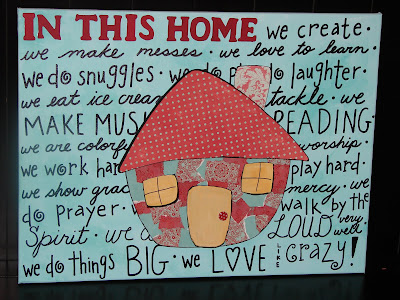 IN THIS HOME we create •
we make messes • we love to learn •
we do snuggles • we do laughter •
we eat ice crea tackle • we
MAKE MUSI READING •
we are colorfu worship •
we work har play hard •
we show grac mercy • we
do prayer • w walk by the
Spirit • we a LOUD very well •
we do things BIG • we LOVE LIKE crazy!